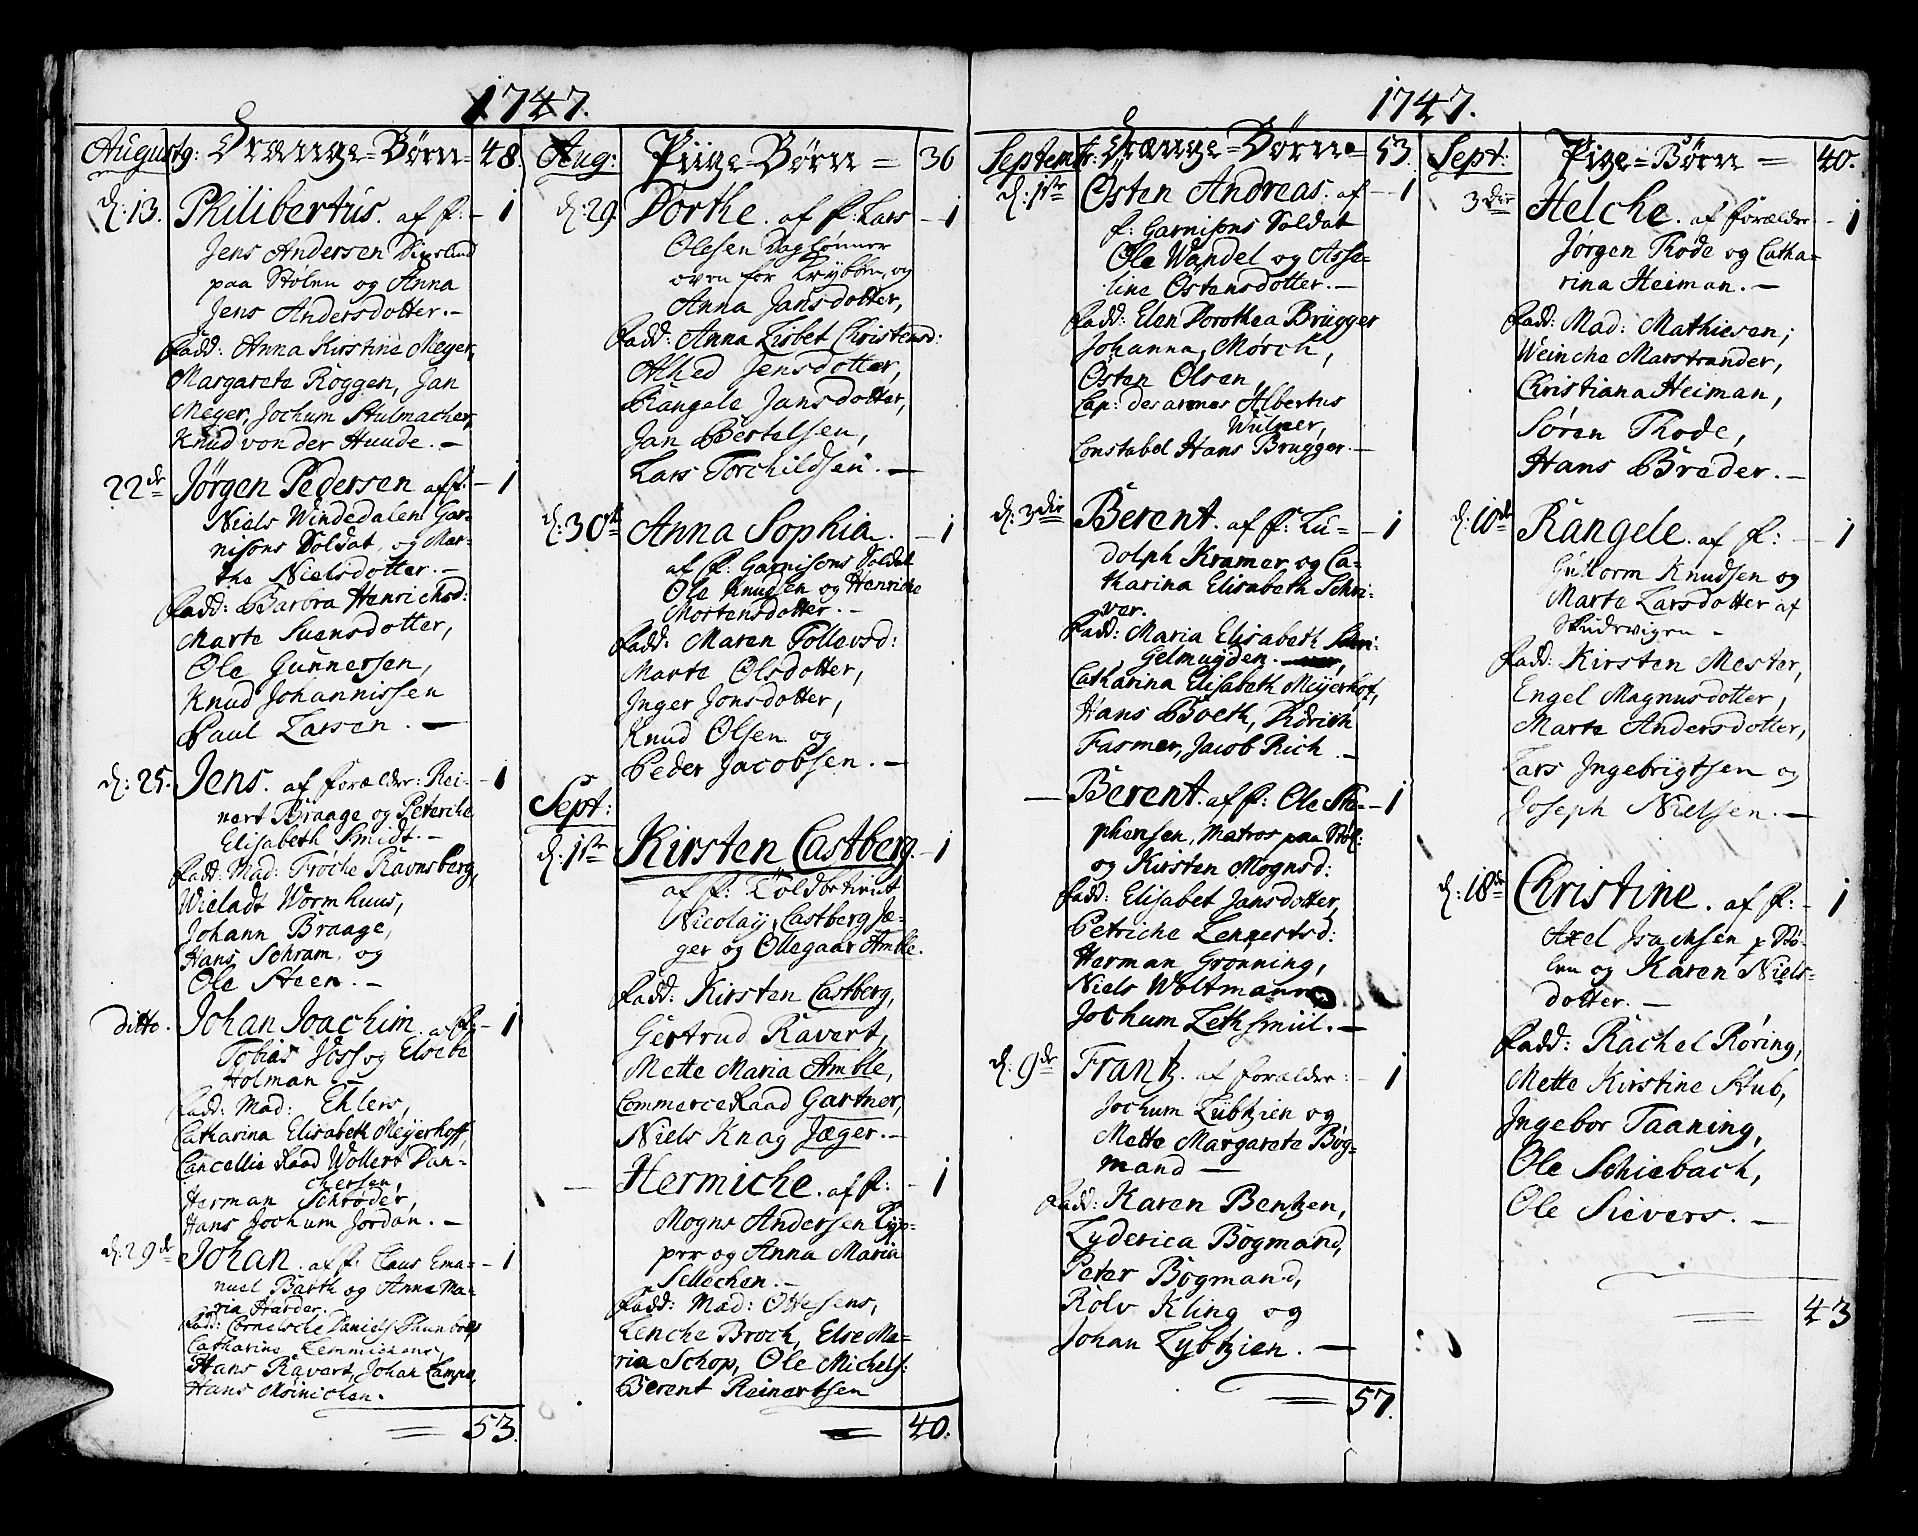 1747.
Augustg: Drænge=Børn= 48.
d: 13. Philibertus. af f: – 1
Jens Andersen
paa Stølen og Anna
Jens Andersdotter. –
Fadd: Anna Kirstine Meyer,
Margarete Røggen, Jan
Meyer, Jochum Stulmacher,
Knud von der Huude. –
22de Jørgen Pedersen af f: – 1
Niels Windedalen Gar=
nisons Soldat, og Mar=
the Nielsdotter. –
Fadd: Barbra Henrichsd:
Marte Suensdotter,
Ole Gunnersen,
Knud Johannissen
Paul Larsen. –
d: 25. Jens. af forældre: Rei= – 1
nert Braage og Peteriche
Elisabeth Smidt. –
Fadd: Mad: Trøche Ravnsberg,
Wieladt Wormhuus,
Johann Braage,
Hans Schram, og
Ole Steen. –
ditto. Johan Joachim. af f: – 1
Tobias Joss og Elsebe
Holman. –
Fadd: Mad: Ehlers,
Catharina Elisabeth Meyerhoff,
Cancellie Raad Wollert Dan=
chersen,
Herman Schrøder,
Hans Jochum Jordan. –
d: 29de Johan. af f: Claus Ema= – 1
nuel Barth og Anna Ma=
ria Harder.
Fadd: Cornelsche Daniels
Catharina Lemmichens,
Hans Ravert, Johan Campe,
Hans Meinichen.
53.
Aug: Piige=Børn = 36
d: 29. Dorthe. af f: Lars – 1
Olesen Daglønner
oven for Krybben, og
Anna Jansdotter,
Fadd: Anna Lisbet Christensd:
Alhed Jensdotter,
Rangele Jansdotter,
Jan Bertelsen,
Lars Torchildsen. –
d: 30te Anna Sophia. – 1
af f: Garnisons Soldat
Ole Knudsen og Henriche
Mortensdotter. –
Fadd: Maren Tollevsd:
Marte Olsdotter,
Inger Jonsdotter,
Knud Olsen og
Peder Jacobsen. –
Sept:
d: 1ste Kirsten Castberg. – 1
af f: Toldbetient
Nicolay Castberg Jæ=
ger og Ollegaar Amble.
Fadd: Kirsten Castberg,
Gertrud Ravert,
Mette Maria Amble,
CommerceRaad Gartner,
Niels Knag Jæger. –
– Hermiche. af f: – 1
Mogns Andersen Typ=
per og Anna Maria
Sellechen. –
Fadd: Mad: Ottesens,
Lenche Broch, Else Ma=
ria Schop, Ole Michels:
Berent Reinertsen
40.
1747.
Septembr: Drænge=Børn= 53.
d: 1ste Østen Andreas. af – 1
f: Garnisons Soldat
Ole Wandel og Asse=
line Østensdotter. –
Fadd: Elen Dorothea Brugger
Johanna Mørch,
Østen Olsen,
Cap: des armes Albertus
Wulner,
Constabel Hans Brugger. –
d: 3die Berent. af f: Lu= – 1
dolph Kramer og Ca=
tharina Elisabeth Schri=
ver.
Fadd: Maria Elisabeth
Gelmuyden.
Catharina Elisabeth Meyerhof,
Hans Boeth, Didrich
Fasmer, Jacob Rich –
– Berent. af f: Ole Ste= – 1
phensen, Matros paa Støl:
og Kirsten Mognsd:
Fadd: Elisabet Jansdotter,
Petriche Lennertsd:
Herman Grønning,
Niels Woltmann
Jochum Lethsmiil. –
d: 9de Frantz. af forældre: – 1
Jochum Lybtzien og
Mette Margarete Bøg=
mand –
Fadd: Karen Bentzen,
Lyderica Bøgmand,
Peter Bøgmand,
Rolv Kling og
Johan Lybtzien. –
57.
Sept: Pige=Børn = 40.
3die Helche. af forældre – 1
Jørgen Thode og Catha=
rina Heiman. –
Fadd: Mad: Mathiesen;
Weinche Marstrander,
Christiana Heiman,
Søren Thode,
Hans Breder. –
d: 10de Rangele. af f: – 1
Guttorm Knudsen og
Marte Larsdotter af
Skudevigen –
Fadd: Kirsten Mester,
Engel Magnusdotter,
Marte Andersdotter,
Lars Ingebrigtsen og
Joseph Nielsen. –
d: 18de Christine. af f: – 1
Axel Isachsen p Stø=
len og Karen Niels=
dotter. –
Fadd: Rachel Røring,
Mette Kirstine Stub,
Ingebor Taaning,
Ole Schiebach,
Ole Sievers. –
43